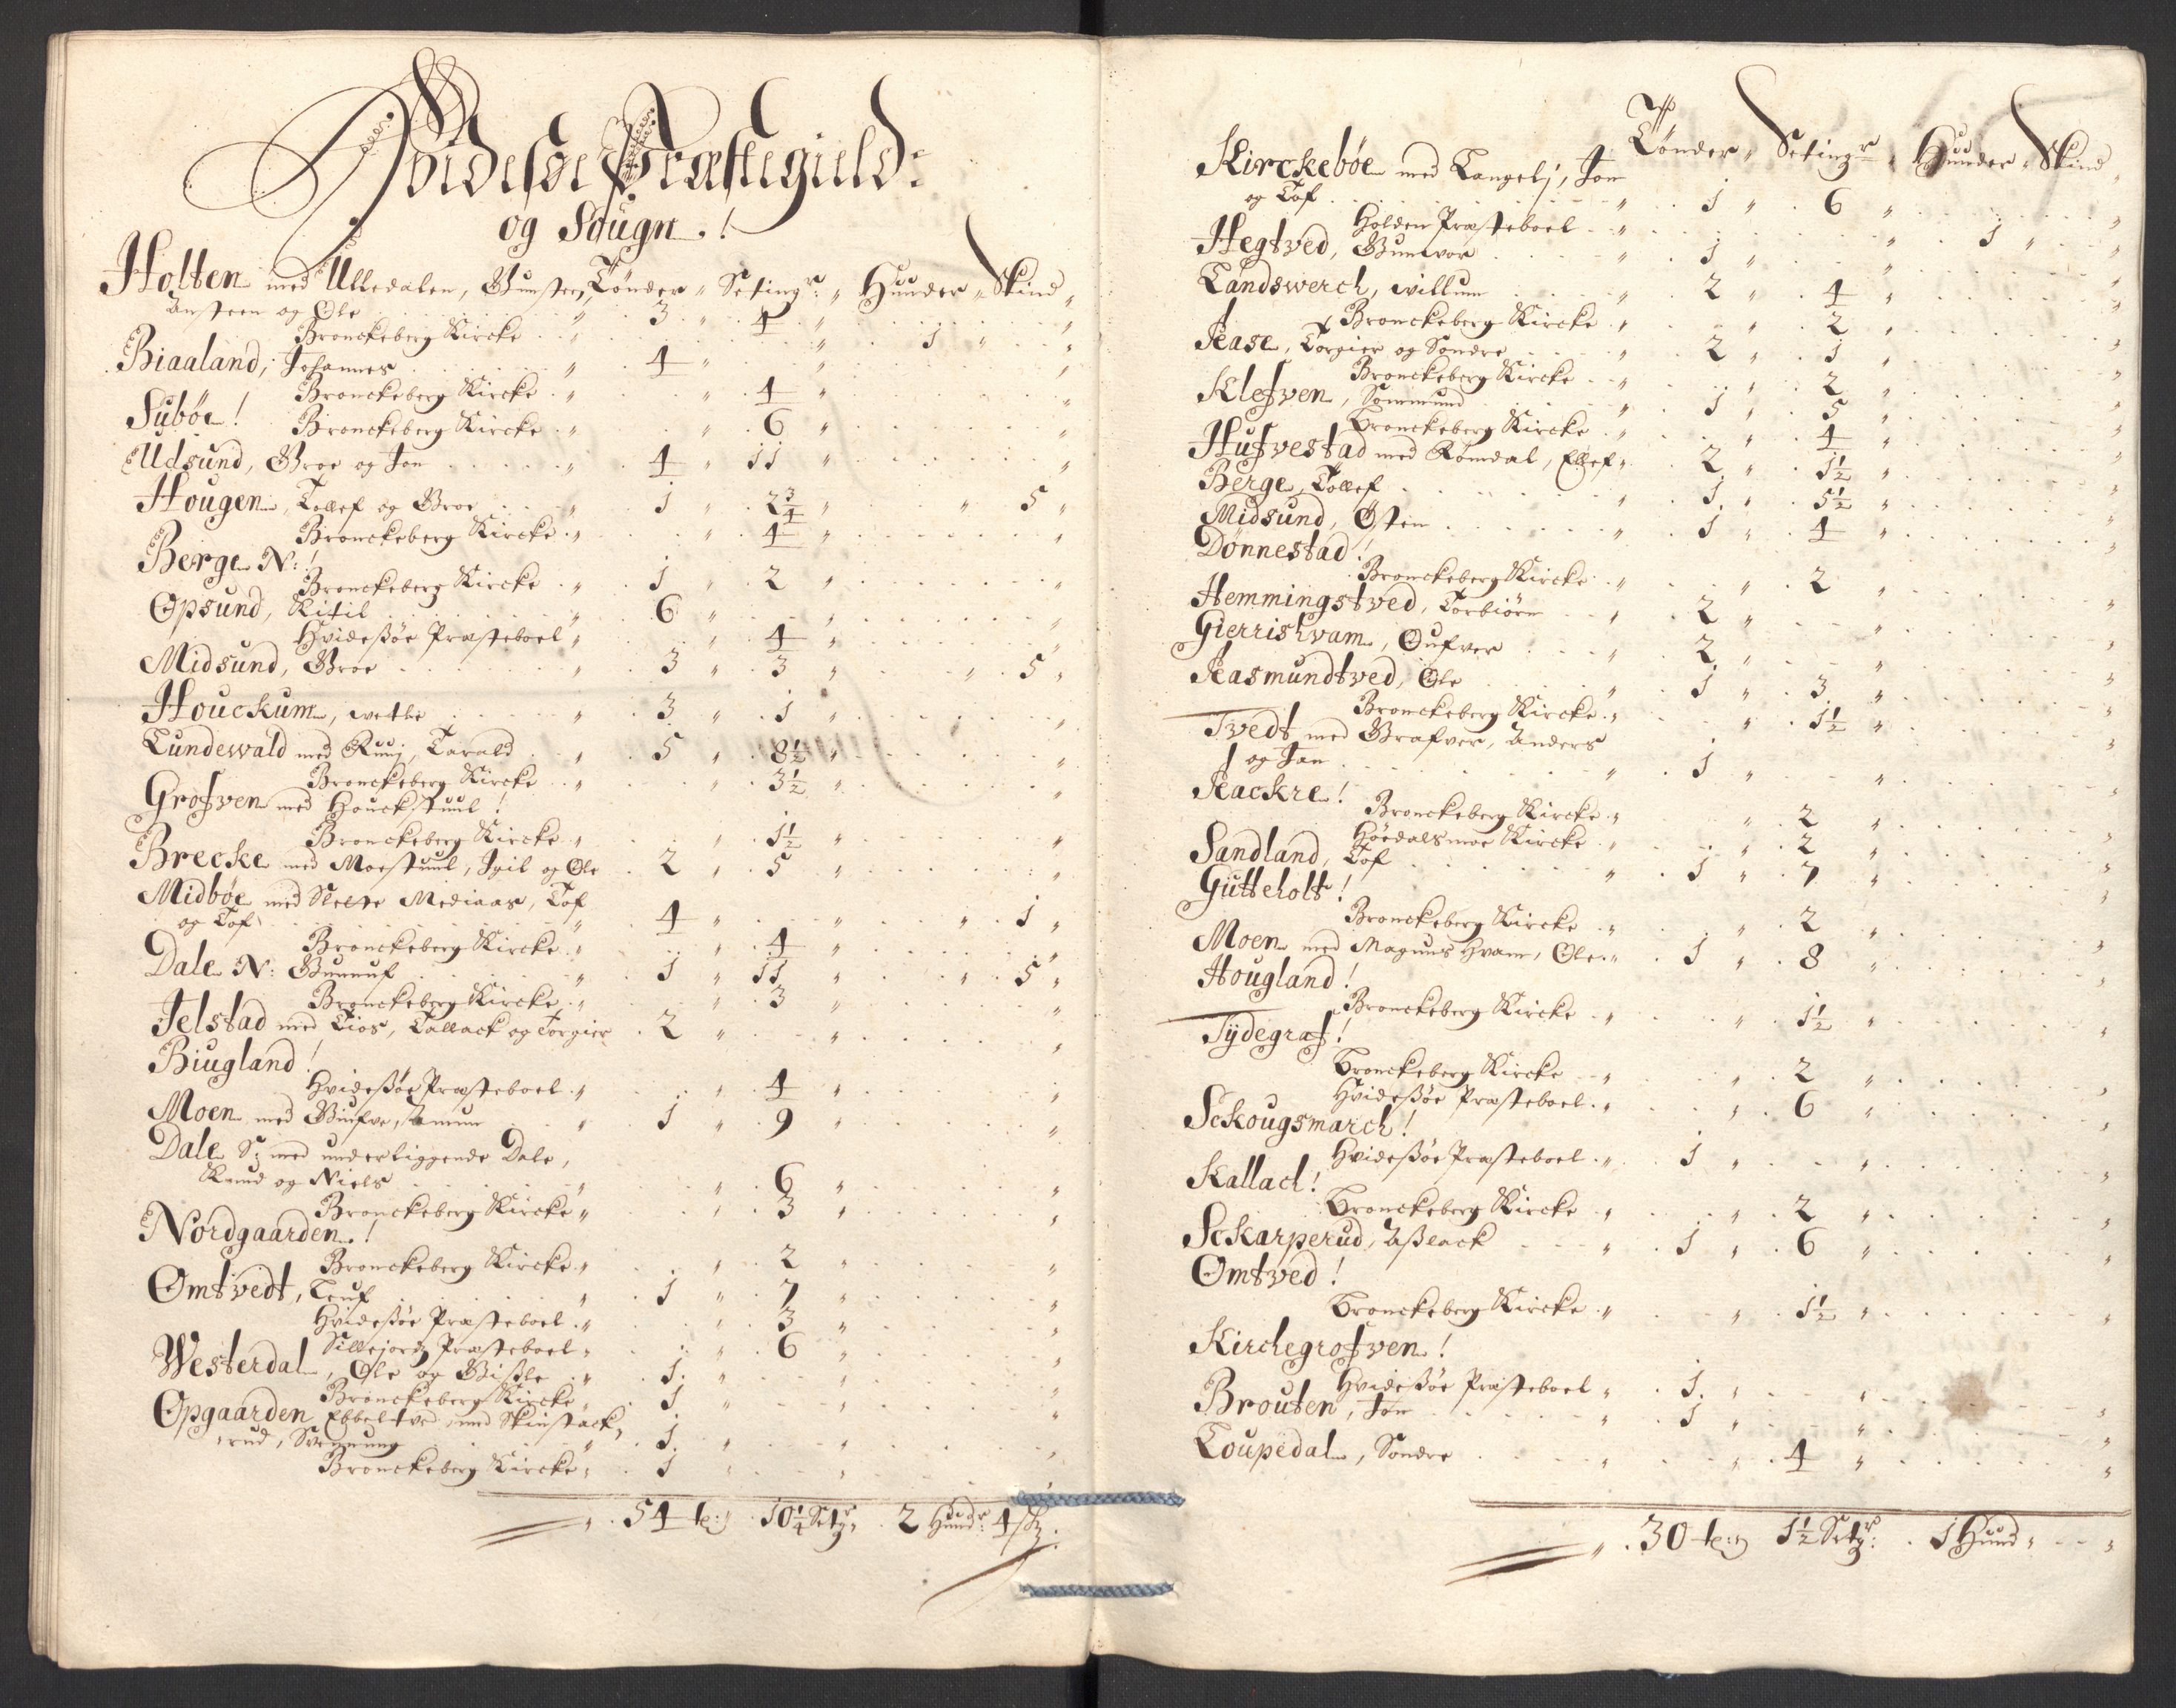 Hvidesöe Præstegield:
og Sougn!
Holten med Ulledalen, Gunsten, Tönder „ Setingr: „ Hunder „ Skind „
Ansteen og Ole „ 3 „ 4 „ „
Bronckeberg Kircke „ „ 1 „ „
Biaaland, Johannes „ 4 „ „ „
Bronckeberg Kircke „ „ 4 „ „
Suböe! Bronckeberg Kircke „ „ 6 „ „
Udsund, Groe og Jon „ 4 „ 11 „ „
Hougen, Tollef og Groe „ 1 „ 2 3/4 „ „ 5 „
Bronckeberg Kircke „ „ 4 „ „
Berge N:!
Bronckeberg Kircke „ 1 „ 2 „ „
Opsund, Kitil „ 6 „ „ „
Hvidesßöe Præsteboel „ „ 4 „ „
Midsund, Groe „ 3 „ 3 „ „ 5 „
Houckum, wetle „ 3 „ 1 „ „
Lundewald med Ruuj, Tarald „ 5 „ 8 1/2 „ „
Bronckeberg Kircke „ „ 3 1/2 „ „
Grofven med Houckstuul!
Bronckeberg Kircke „ „ 1 1/2 „ „
Brecke med Moestuul, Igil og Ole 2 „ 5 „ „
Midböe med Slette Mediaas, Tof
og Tof „ 4 „ „ „ 1 „
Bronckeberg Kircke „ „ 4 „ „
Dale N: Gunnuf „ 1 „ 11 „ „ 5 „
Bronckeberg Kircke „ „ 3 „ „
Jelstad med Lios, Tallack og Torgier 2 „ „ „
Biugland!
Hvideßöe Præsteboel „ „ 4 „ „
Moen med Giufve, Amun „ 1 „ 9 „ „
Dale S: med underliggende Dale,
Knud og Niels „ „ 6 „ „
Bronckeberg Kircke „ „ 3 „ „
Nordgaarden!
Bronckeberg Kircke „ „ 2 „ „
Omtvedt, Leuf „ 1 „ 7 „ „
Hvideßöe Præsteboel „ „ 3 „ „
Sillejord Præsteboel „ „ 6 „ „
Westerdal, Ole og Gißle „ 1 „ „ „
Bronckeberg Kircke „ 1 „ „ „
Opgaarden Ebbeltved med Skinstack,
rud, Svennung „ 1 „ „ „
Bronckeberg Kircke „ 1 „ „ „
„ 54 tr: 10 1/4 Setgr: 2 Hundr: 4 sk:
Tönder „ Setingr „ Hunder „ Skind „
Kirckeböe med Langelj, Jon
og Tof „ 1 „ 6 „ „
Holden Præsteboel „ „ 1 „ „
Hegtved, Gunvor „ 1 „ „ „
Landswerch, willum „ 2 „ 4 „ „
Bronckeberg Kircke „ „ 2 „ „
Aase, Torgier og Sondre „ 2 „ 1 „ „
Bronckeberg Kircke „ „ 2 „ „
Klefven, Sommund „ 1 „ 5 „ „
Bronckeberg Kircke „ „ 4 „ „
Hufvestad med Romdal, Ellef „ 2 „ 1 1/2 „ „
Berge, Tollef „ 1 „ 5 1/2 „ „
Midsund, Östen „ 1 „ 4 „ „
Dönnestad!
Bronckeberg Kircke „ „ 2 „ „
Hemmingstved, Torbiörn „ 2 „ „ „
Gierrishvam, Oufver „ 2 „ „ „
Aasmundtved, Ole „ 1 „ 3 „ „
Bronckeberg Kircke „ „ 1 1/2 „ „
Tvedt med Grafver, Anders
og Jan „ 1 „ „ „
Aackre!
Bronckeberg Kircke „ „ 2 „ „
Höedalsmoe Kircke „ „ 2 „ „
Sandland, Tof „ 1 „ 7 „ „
Gutteholt!
Bronckeberg Kircke „ „ 2 „ „
Moen med Magnus Hvam, Ole „ 1 „ 8 „ „
Hougland!
Bronckeberg Kircke „ „ 1 1/2 „ „
Tydegraf!
Bronckeberg Kircke „ „ 2 „ „
Hvideßöe Præsteboel „ „ 6 „ „
Sckougsmarch!
Hvideßöe Præsteboel „ 1 „ „ „
Kallach!
Bronckeberg Kircke „ „ 2 „ „
Sckarperud, Aßlack „ 1 „ 6 „ „
Omtved!
Bronckeberg Kircke „ „ 1 1/2 „ „
Kirchegrofven!
Hvideßöe Præsteboel „ 1 „ „ „
Brouten, Jon „ 1 „ „ „
Loupedal, Sondre „ „ 4 „ „
„ 30 tr: 1 1/2 Setgr: 1 Hund „ „